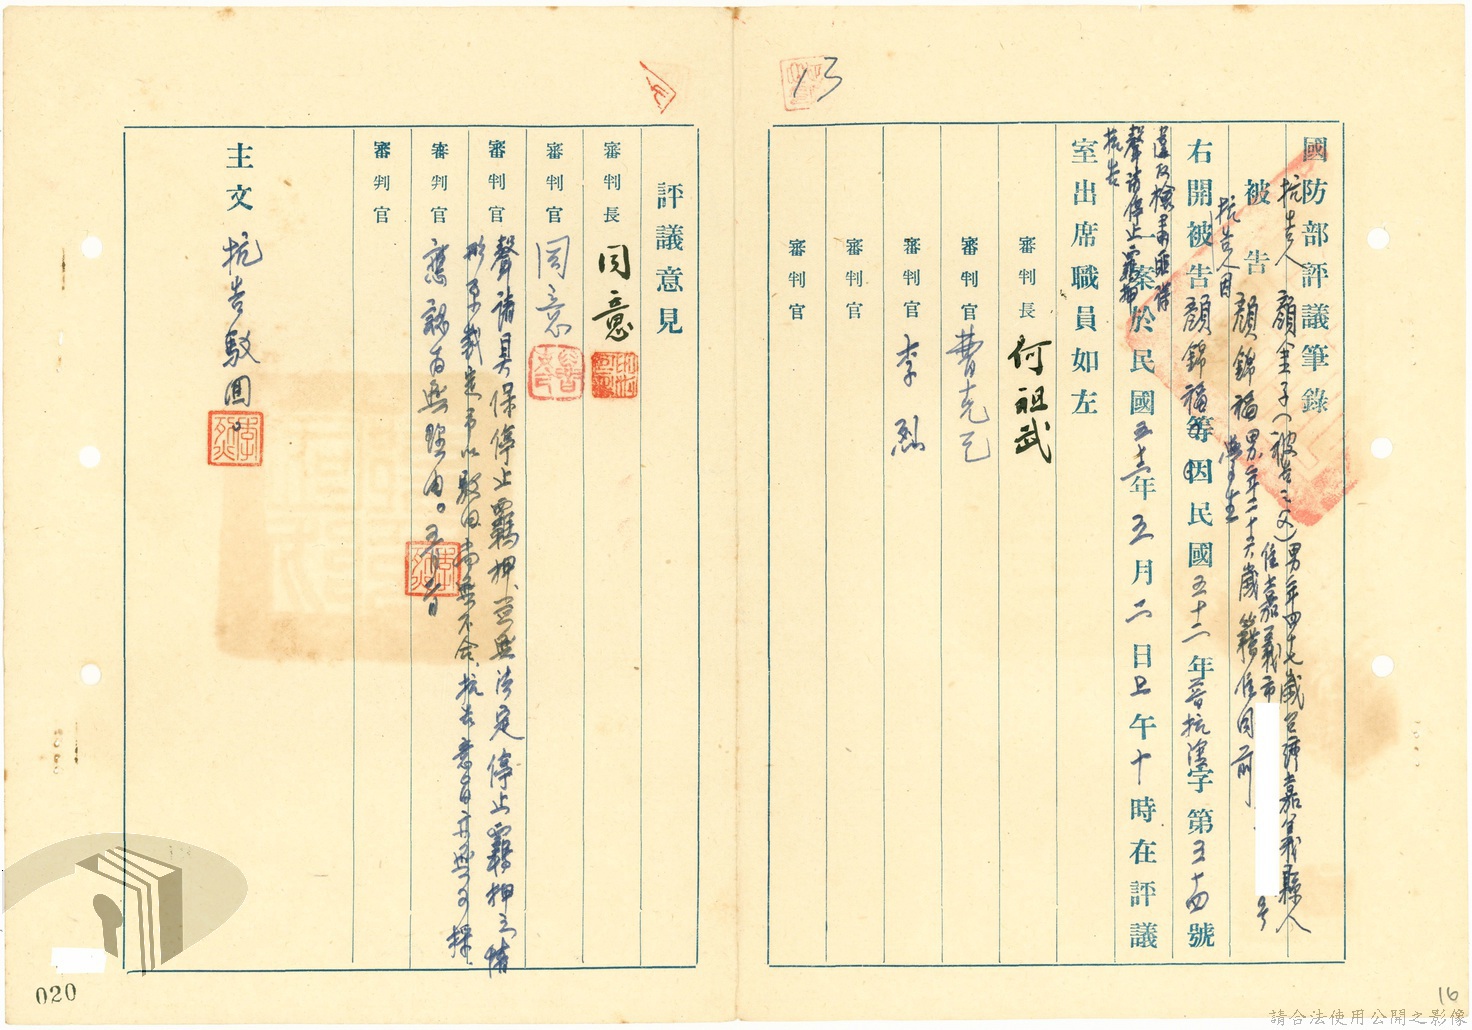 13
國防部評議筆錄
抗告人 顏金子(被告之父)男年四十七歲台灣嘉義縣人
住嘉義市 号
被告 顏錦福 男年二十六歲籍住同前
學生
抗告人因
右開被告顏錦福等因民國五十二年普抗淒字第五十四號
違反檢肅匪諜
聲請停止羈押
抗告
一案於民國五十二年五月二日上午十時在評議
室出席職員如左
審判長 何祖武
審判官 曹克己
審判官 李烈
審判官
審判官
評議意見
審判長 同意
審判官 同意
審判官 聲請具保停止羈押,並無法定停止羈押之情
形原裁定予以駁回尚無不合,抗告意旨亦無可採
審判官 應認為無理由。
審判官
主文 抗告駁回。
李烈
020
16
請合法使用公開之影像